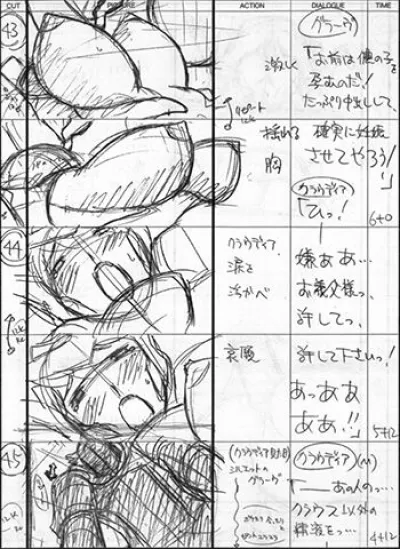 CUT
PICTURE
ACTION
DIALOGUE
TIME
43
グラーヴ
激しく
「お前は俺の子を
孕むのだ!
たっぷり中出しして、
揺れる
胸
確実に妊娠
させてやろう!」
6+0
クラウディア
「ひっ!
44
クラウディア
涙を
浮かべ
嫌ああ…
お義父様っ、
許してっ、
哀願
許して下さいっ!
あっああ
ああ!!」
5+12
45
クラウディア(M)
シルエットの
グラーヴ
「――あの人のっ…
クラウス以外の
精液をっ…
4+12